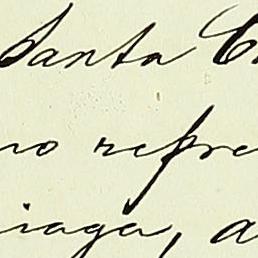 Santa C
no refre
iaga, a